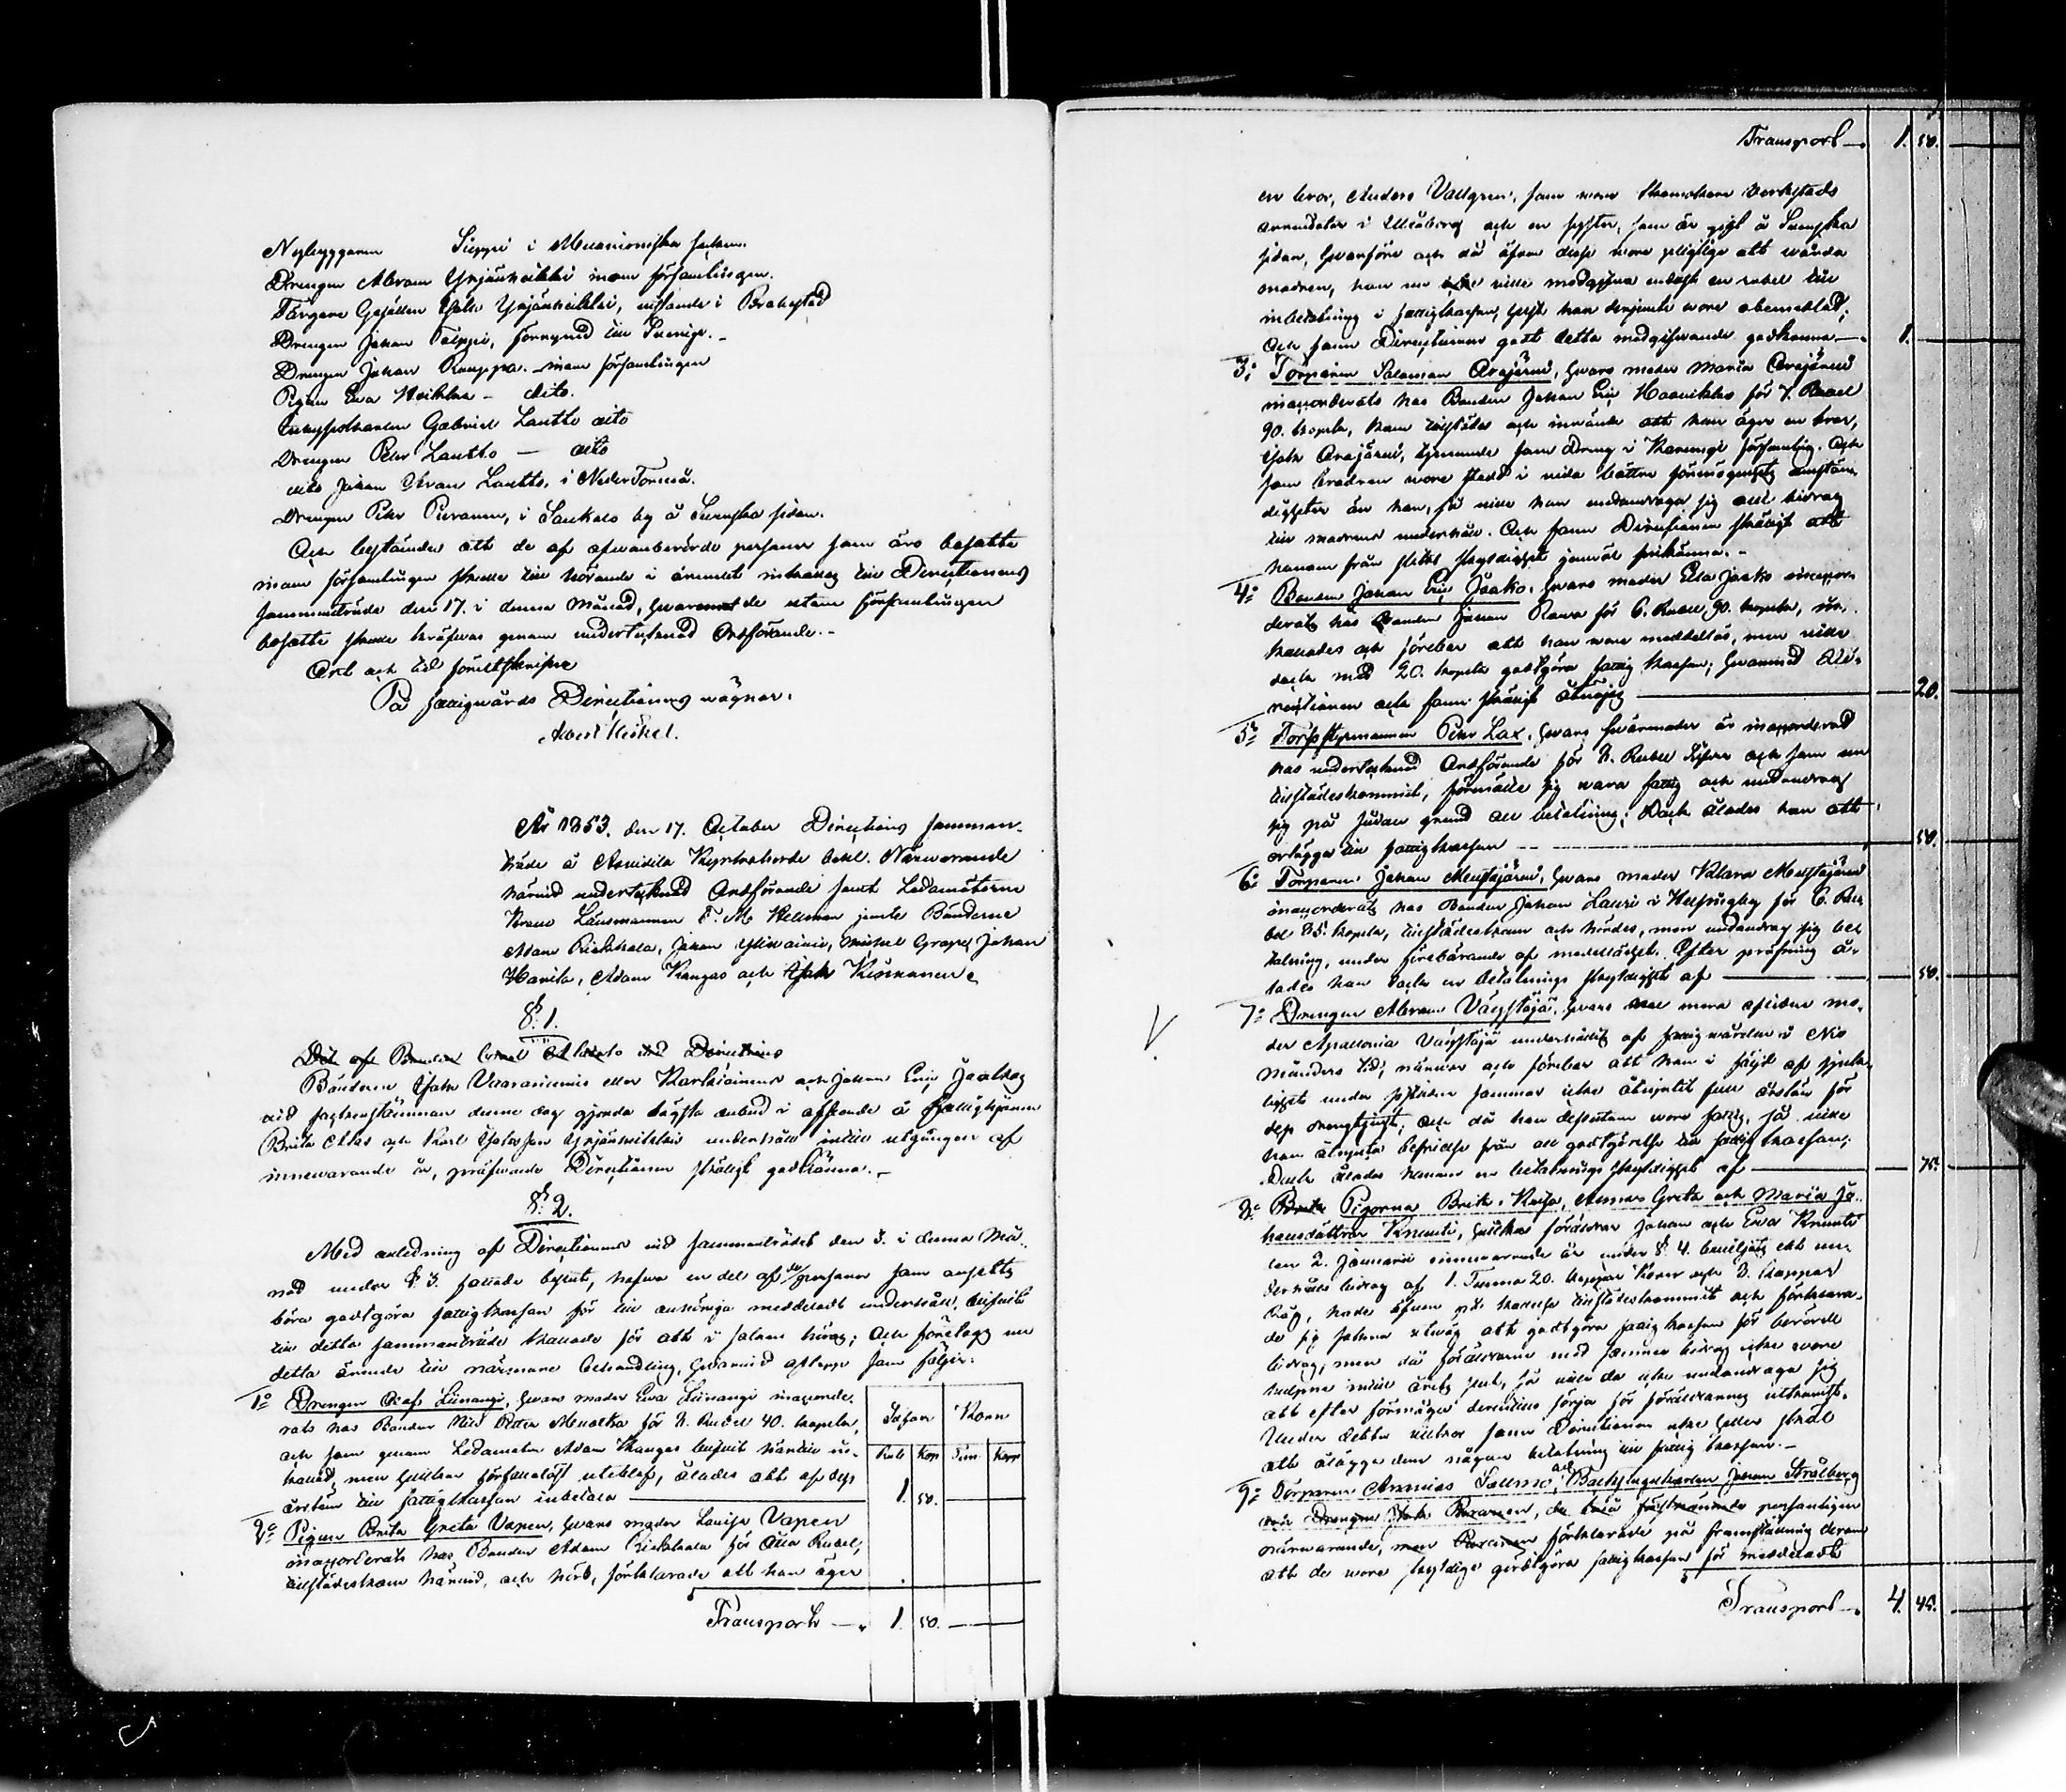 Nybyggaren Sieppi i Muonioniska socken.
Drengen Abram Yrjänheikki inom församlingen.
Färgare Gesällen Isak Yrjänheikki, vistande i Brahestad
Drengen Johan Töippi, förrymd till Sverige.
Drengen Johan Rauppa. inom församlingen
Pigan Eva Heikka - dito.
Inhyseskarlen Gabriel Lautto dito
Drengen Petr Lautto - dito
dito Johan Abram Lautto, i Neder Torneå.
Drengen Petr Pieranen, i Saukolo by å Svenska sidan.
Och bestämdes att de af ofvanberörde personer som äro bosatte
inom församlingen skulle till hörande i ärendet inkallas till Directionens
sammanträde den 17. i denna Månad, hvaremot de utom församlingen
bosatte skulle kräfvas genom undertecknad Ordförande.-
Ort och tid som förutskrifne
På fattigvårds Directionens vägnar.
Albert Heikel.
År 1853. den 17. October Directions samman-
träde å Arvidila Kyrkoherde boställ. Närvarande
härvid undertecknad Ordförande samt Ledamöterne
Krono Länsmannen F. M. Hellman jemte Bönderne
Adam Rickkala, Johan Yliniemi, Michel Grape, Johan
Hanila, Adam Kangas och Isak Keskinen.
§. 1.
Det af Bonden
Bönderne Isak Vaaraniemi eller Karhiaiinen och Johan Eric Jaakko
vid sockenstämman denne dag gjorda lägsta anbud i afseende å fattighjonen
Brita Alas och Karl Isaksson Yrjänheikkis underhåll intill utgången af
innevarande år, pröfvade Directionen skäligt godkänna.-
§. 2.
Med anledning af Directionens vid sammanträdet den 3. i denna Må-
nad under §. 3. fattade beslut, hafva en del af de personer som ansetts
böra godtgöra fattigkassan för till anhöriga meddeladt underhåll, blifvit
till detta sammanträde kallade för att i saken höras; och företogs nu
detta ärende till närmare behandling, hvarvid aflopp som följer:
1o Drengen Olof Liinangi, hvars moder Eva Liinangi inaccorde-
rats hos Bonden Nils Petter Muotka för 8. Rubel 40. kopek,
och som genom Ledamoten Adam Kangas blifvit härtill in-
kallad, men hvilken förfallolöst uteblef, ålades att af dess
årslön till fattigkassan inbetala
Silfver Korn
Rub Kop Tun. Kapp
1. 50.
2o Pigan Brita Greta Vapen, hvars moder Lovisa Vapen
inaccorderats hos Bonden Adam Rickkala för Åtta Rubel,
tillstädeskom härvid, och hörd, förklarade att hon äger
Transport - 1. 50.
Transport - 1. 50.
en bror, Anders Vallgren, som vore Skomakare verkstads
arendator i Uleåborg och en syster, som är gift å Svenska
sidan, hvarföre och då äfven desse vore pligtige att vårda
modren, hon nu icke ville medgifva endast en rubel till
inbetalning i fattigkassan, helst hon derjemte vore obemedlad;
Och fann Directionen godt detta medgifvande godkänna - 1.
3o Torparen Salomon Arajärvi, hvars moder Maria Arajärvi
inaccorderats hos Bonden Johan Eric Haavikko för 7. Rubel
90. kopek, kom tillstädes och invände att han äger en bror,
Isak Arajärvi, tjenande som Dreng i Karungi församling. Och
som brodren vore stadd i vida bättre förmögenhets omstän-
digheter än han, så ville han undandraga sig allt bidrag
till modrens underhåll. Och fann Directionen skäligt att
honom från slikt skyldighet jemväl frikänna.-
4o Bonden Johan Eric Jaako, hvars moder Elsa Jaako inaccor-
derats hos Bonden Johan Rova för 6. Rubel, 90. kopek, in-
kallades och förebar att han vore medellös, men ville
dock med 20. kopek godtgöra fattig kassan; hvarmed Di-
rectionen och fann skäligt åtnöjas - 20.
5o Torpstyrmannen Petr Lax, hvars svärmoder är inaccorderad
hos undertecknad Ordförande för 8. Rubel Silfver och som nu
tillstädeskommit, förmälte sig vara fattig och undandrog
sig på sådan grund all betalning; Dock ålades han att
erlägga till fattigkassan - 50.
6o Torparen Johan Mustajärvi, hvars moder Klara Mustajärvi
inaccorderats hos Bonden Johan Lauri i Helsingby för 6. Ru-
bel 85. kopek, tillstädeskom och hördes, men undandrog sig be-
talning, under förebärande af medellöshet. Efter pröfning å-
lades han dock en betalnings skyldighet af - 50.
7o Drengen Abram Väystäjä, hvars mera aflidne mo-
der Apollonia Väystäjä underhållits af fattigvården i Nio
månders tid, närvar och förebar att han i följd af sjuk-
lighet under sistliden sommar icke åtnjutit full årslön för
dess drengtjenst, och då han dessutom vore fattig, så ville
han åtnjuta befrielse från all godtgörelse till fattigkassan;
Dock ålades honom en betalnings skyldighet af - 75.
8o Pigorna Brita Kajsa, Anna Greta och Maria Jo-
hansdöttrar Knuuti, hvilkas föräldrar Johan och Eva Knuuti
den 2. Januarii innevarande år under §. 4. beviljats ett un-
derhålls bidrag af 1. Tunna 20. kappar Korn och 8. kappar
Råg, hade äfven på kallelse tillstädeskommit och förklara-
de sig sakna utväg att godtgöra fattig kassan för berörde
bidrag, men då föräldrarne med samma bidrag icke vore
hulpne intill årets slut, så ville de icke undandraga sig
att efter förmåga derutinnan sörja för föräldrarnes utkomst.
Under dessa vilkor fann Directionen icke heller skäl
att ålägga dem någon betalning till fattig kassan.-
9o Torparen Annias Salmo, och Backstugukarlen Johan Strålberg
, personligen
närvarande, förklarade på framställning derom
att de vore skyldige godtgöra fattigkassan för meddeladt
Transport - 4. 45.